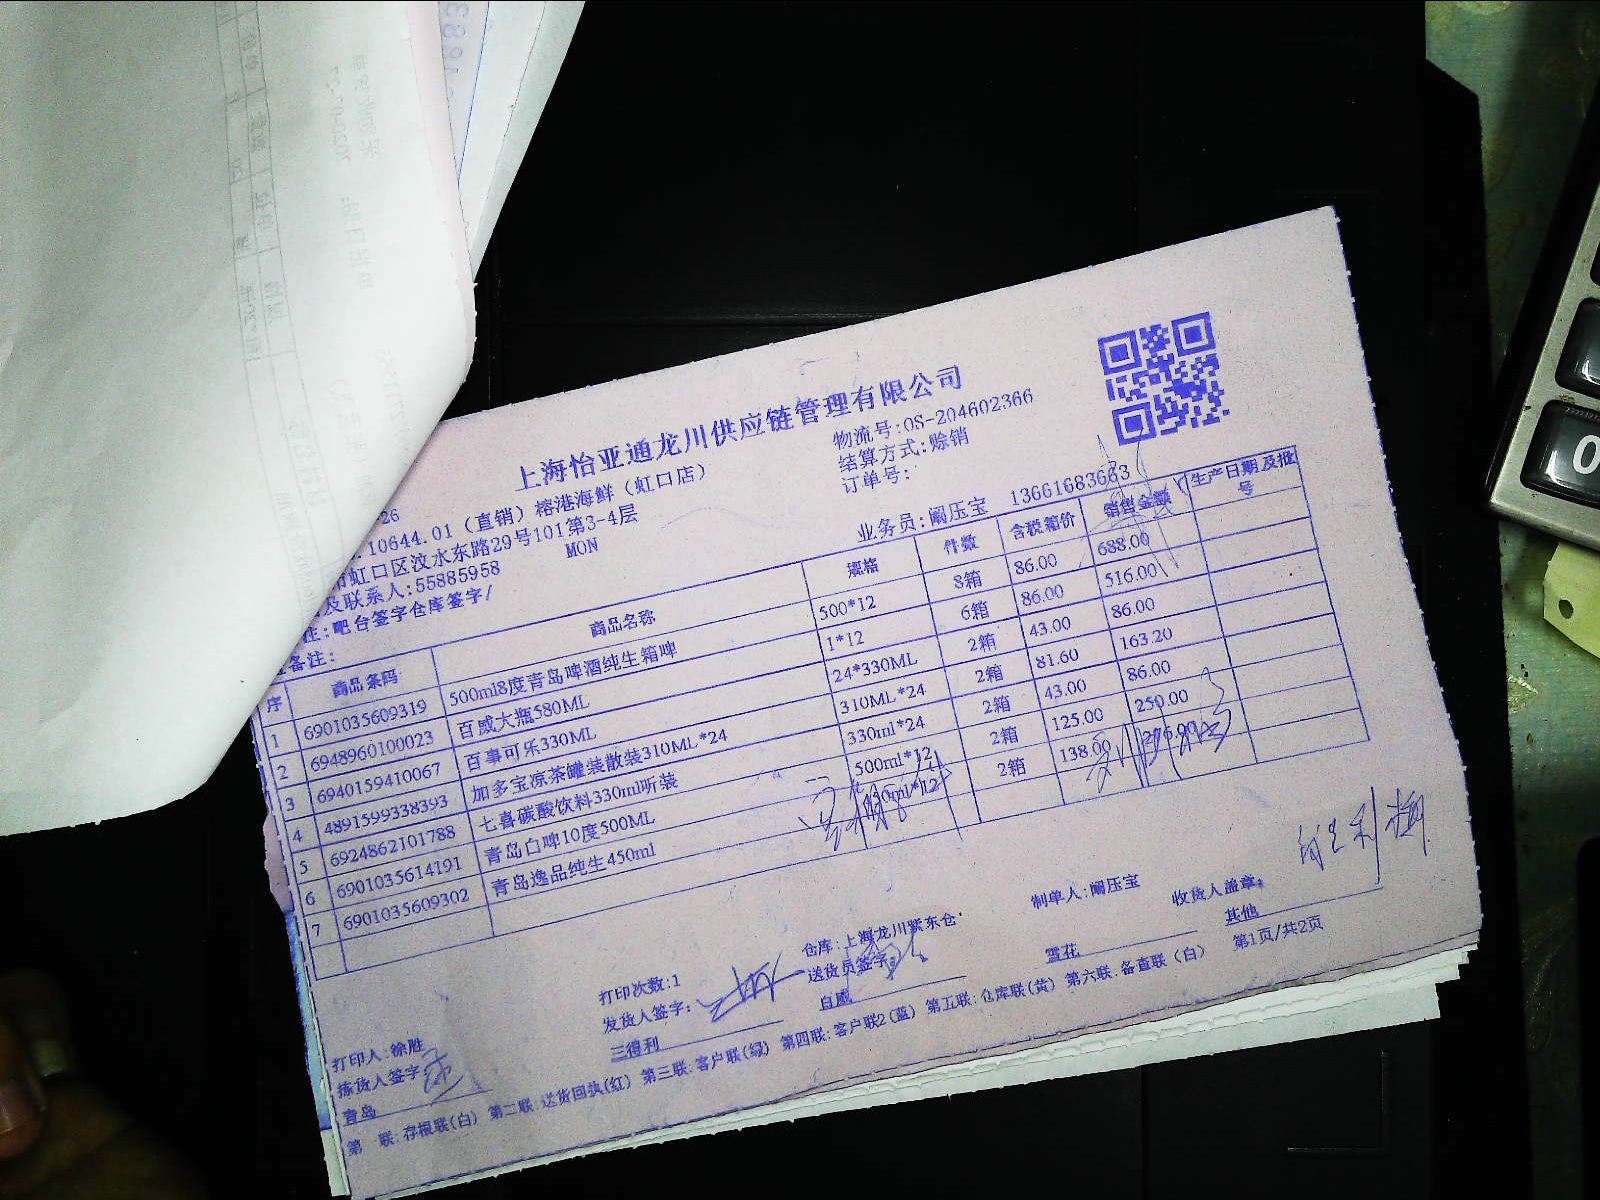 上海怡亚通龙川供应链管理有限公司
物流号:OS-204602366
结算方式:赊销
订单号:
26
10644.01（直销）榕港海鲜（虹口店）
虹口区汶水东路29号101第3-4层
及联系人:55885958 MON
业务员:阚压宝 13661683663
注:吧台签字仓库签字/
备注:
序 商品条码 商品名称 规格 件数 含税箱价 销售金额 生产日期及批号
1 6901035609319 500ml8度青岛啤酒纯生箱啤 500*12 8箱 86.00 688.00
2 6948960100023 百威大瓶580ML 1*12 6箱 86.00 516.00
3 6940159410067 百事可乐330ML 24*330ML 2箱 43.00 86.00
4 4891599338393 加多宝凉茶罐装散装310ML*24 310ML*24 2箱 81.60 163.20
5 6924862101788 七喜碳酸饮料330ml听装 330ml*24 2箱 43.00 86.00
6 6901035614191 青岛白啤10度500ML 500ml*12 2箱 125.00 250.00
7 6901035609302 青岛逸品纯生450ml 2箱 138.00
打印人:徐胜 打印次数:1 仓库:上海龙川紫东仓 制单人:阚压宝 收货人盖章:
拣货人签字: 发货人签字: 送货员签字:
青岛 三得利 百威 雪花 其他
第 联:存根联(白) 第二联:送货回执(红) 第三联:客户联(绿) 第四联:客户联2(蓝) 第五联:仓库联(黄) 第六联:备查联(白) 第1页/共2页
0